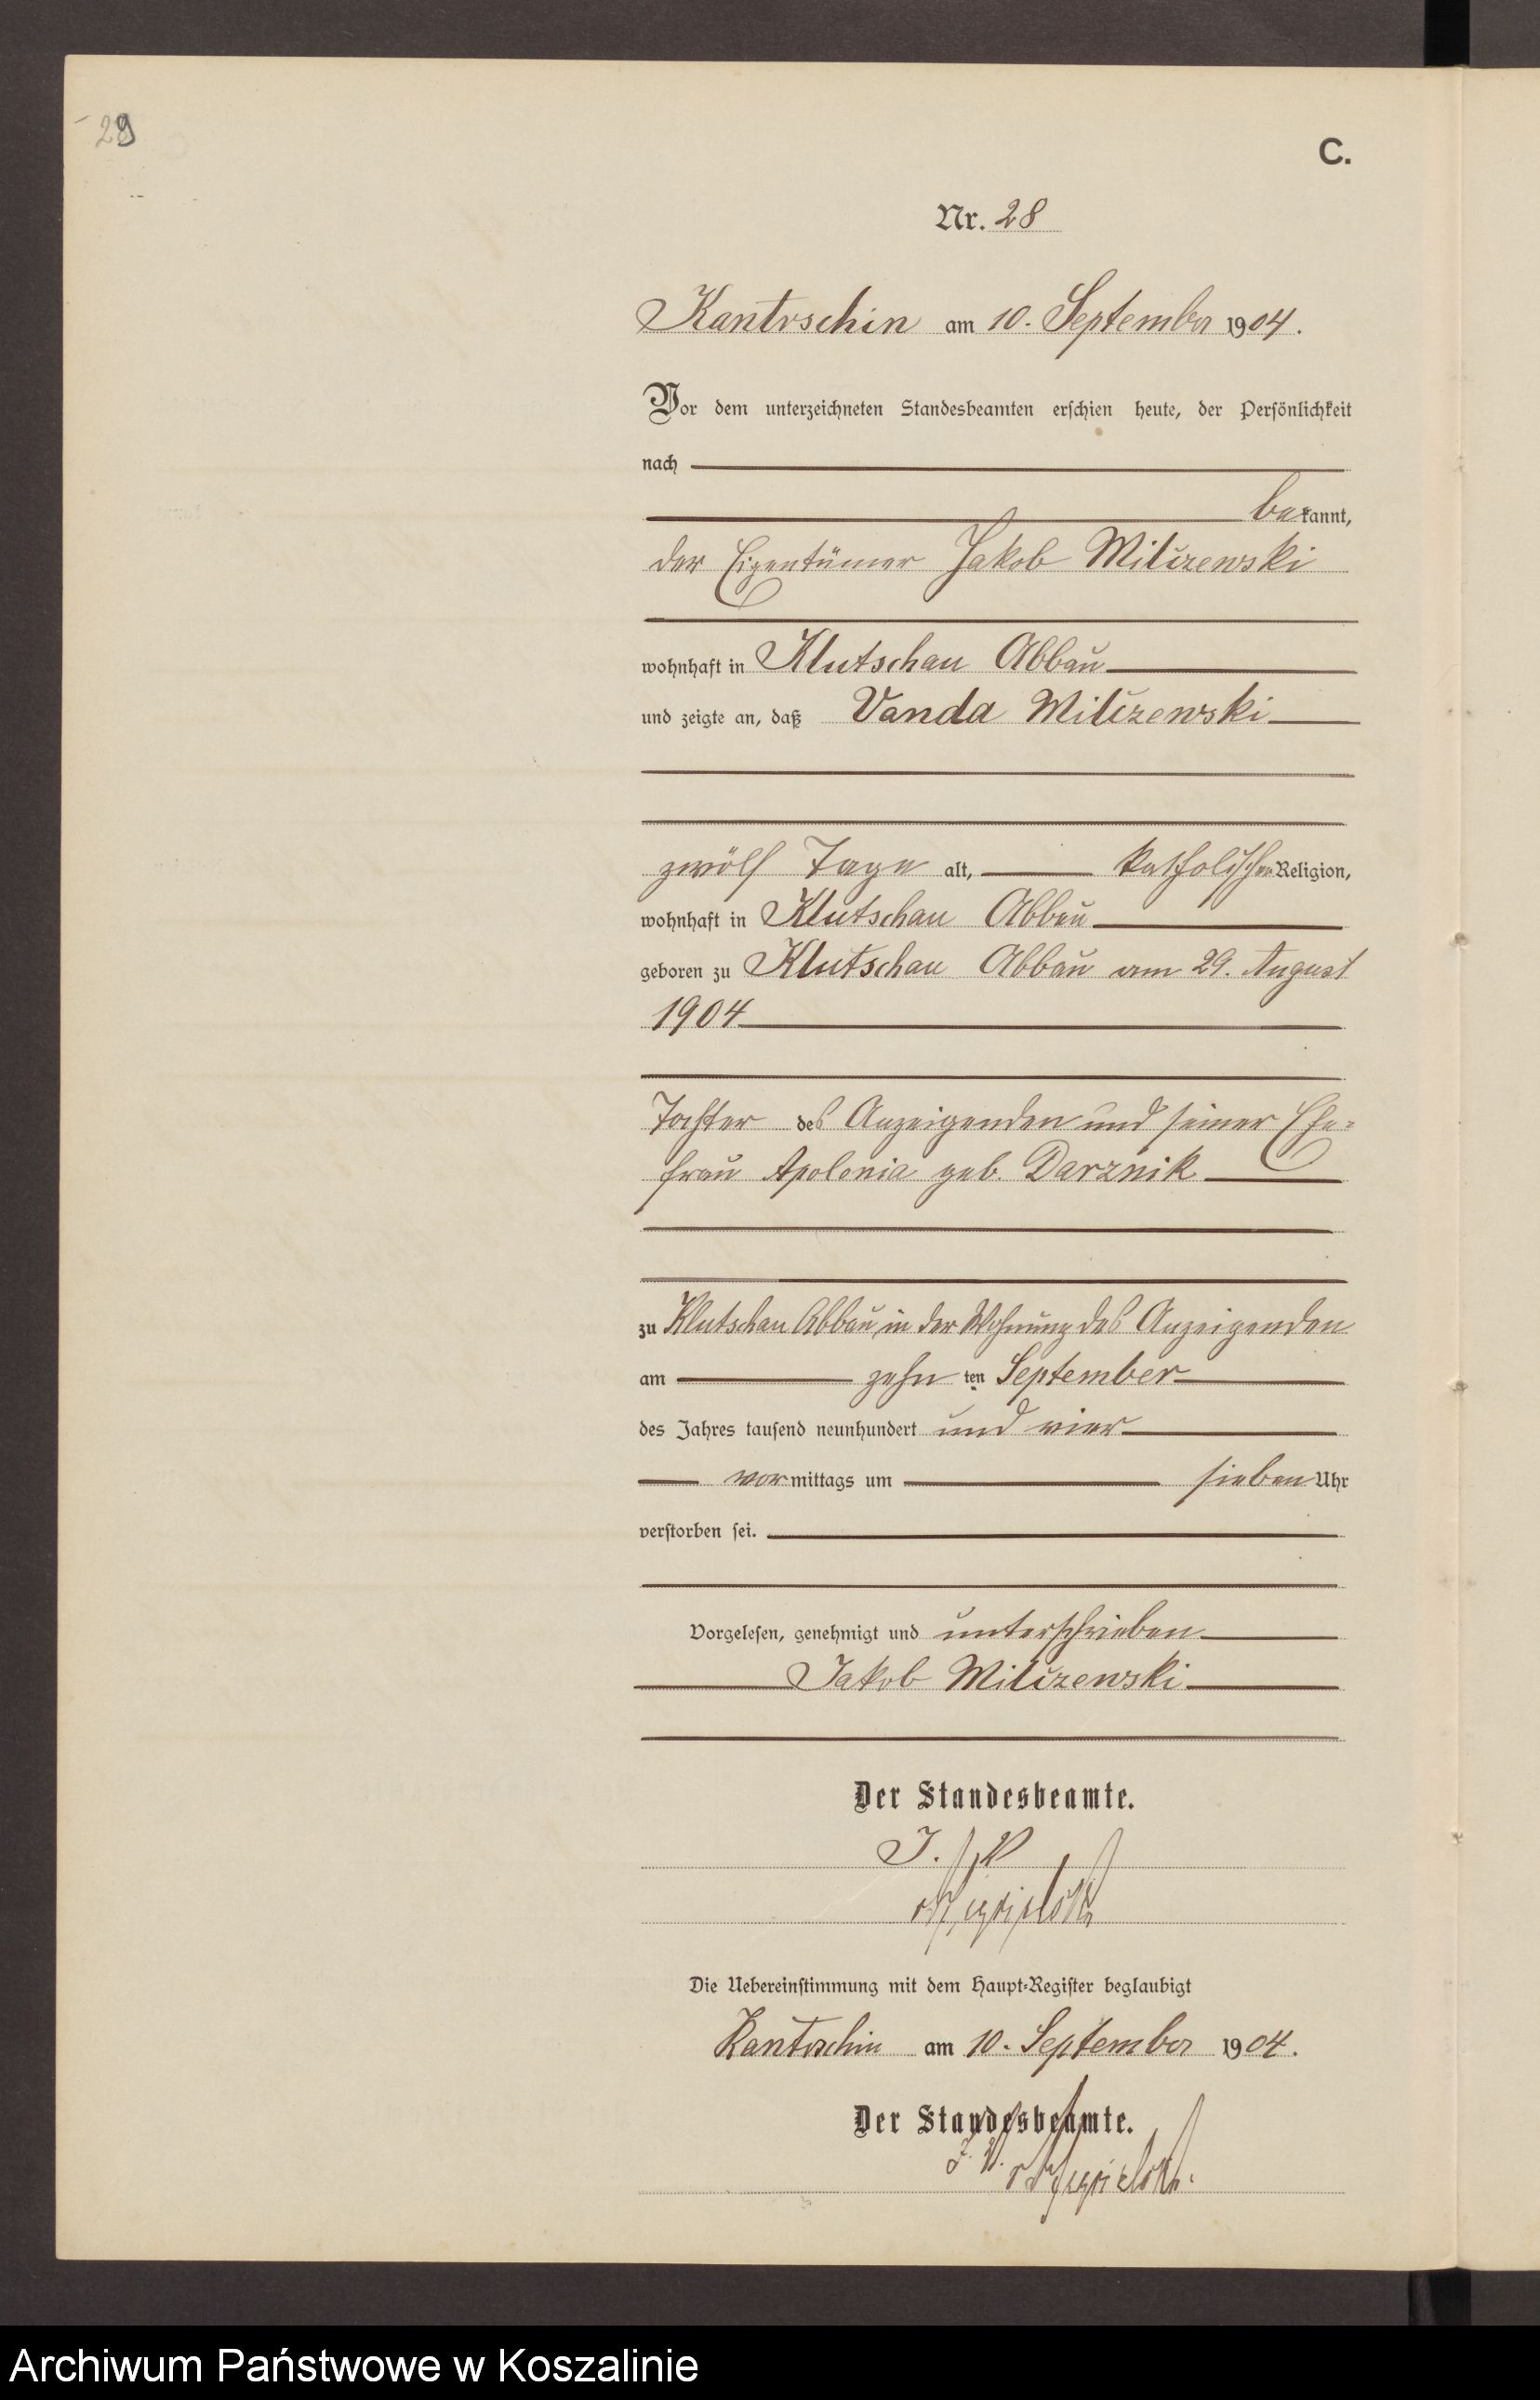 29
C.
Nr. 28
Kantrschin am 10. September 1904.
Vor dem unterzeichneten Standesbeamten erschien heute, der Persönlichkeit
nach
bekannt,
der Eigentümer Jakob Miliszewski
wohnhaft in Klutschau Abbau
und zeigte an, daß Vanda Miliszewski
zwölf Tage alt, katholischer Religion,
wohnhaft in Klutschau Abbau
geboren zu Klutschau Abbau am 29. August
1904
Tochter des Anzeigenden und seiner Ehe=
frau Apolonia geb. Darznik
zu Klutschau Abbau in der Wohnung des Anzeigenden
am zehn ten September
des Jahres tausend neunhundert und vier
vormittags um sieben Uhr
verstorben sei.
Vorgelesen, genehmigt und unterschrieben
Jakob Miliszewski
Der Standesbeamte.
J. V.
Die Uebereinstimmung mit dem Haupt=Register beglaubigt
Kantrschin am 10. September 1904.
Der Standesbeamte.
J. V.
Archiwum Państwowe w Koszalinie